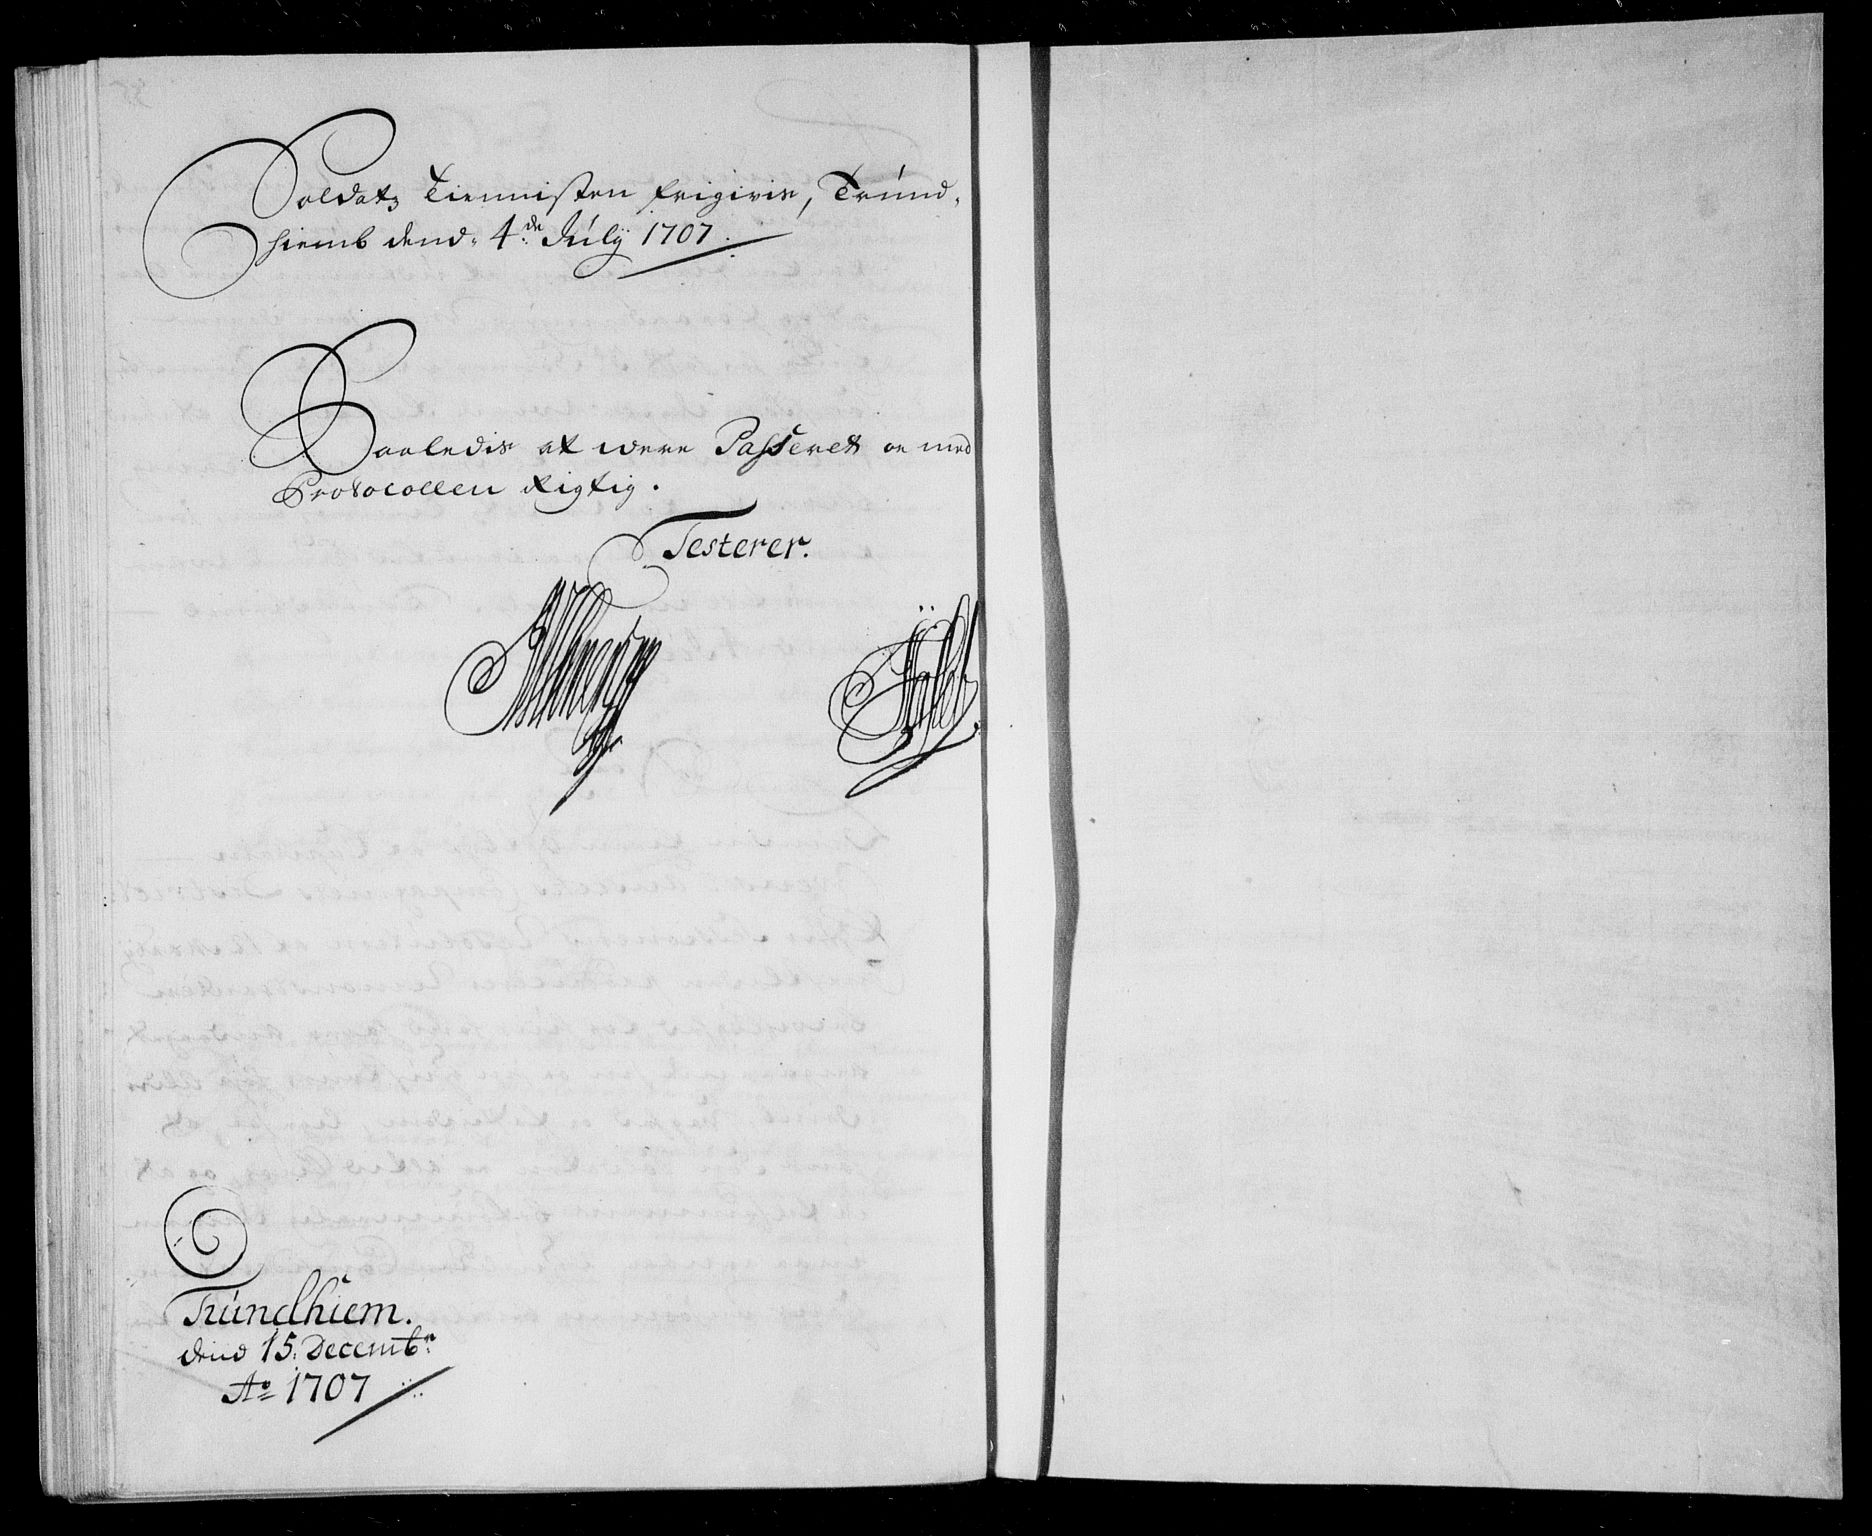 Soldatz Tiennisten frigivis, Trund-
hiemb dend. 4de July 1707.
Saaledis at were Passeret oc med
Protocollen Rigtig.
Testerer.
Trundhiem.
dend 15. Decembr.
Ao 1707